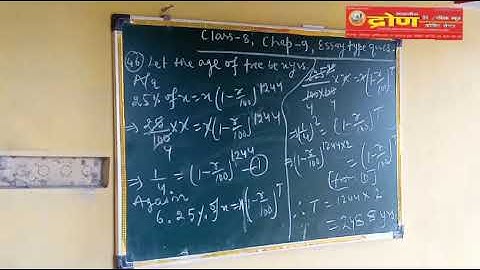 द्रोण
Class-8, Chap-9, Essay type ques.
(46) Let the age of tree be x yrs.
A/q
25% of x = x(1-r/100)^1244
⇒ 25/100 × x = x(1-r/100)^1244
4
⇒ 1/4 = (1-r/100)^1244 —(1)
Again
6.25% of x = x(1-r/100)^T
100×100 × x = x(1-r/100)^T
4 4
⇒ (1/4)^2 = (1-r/100)^T
⇒ (1-r/100)^1244×2 = (1-r/100)^T
[from (1)]
∴ T = 1244×2
= 2488 yrs